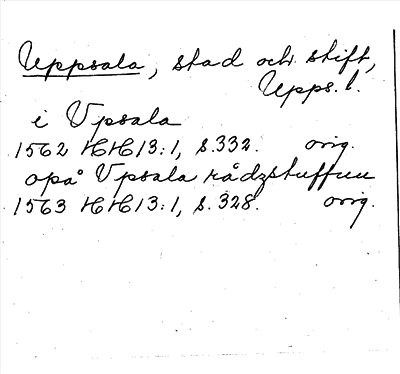 Uppsala, stad och stift,
Upps. l.
i Vpsala
1562 HH 13:1, s. 332. orig.
opå Vpsala rådzstuffun
1563 HH 13:1, s. 328. orig.